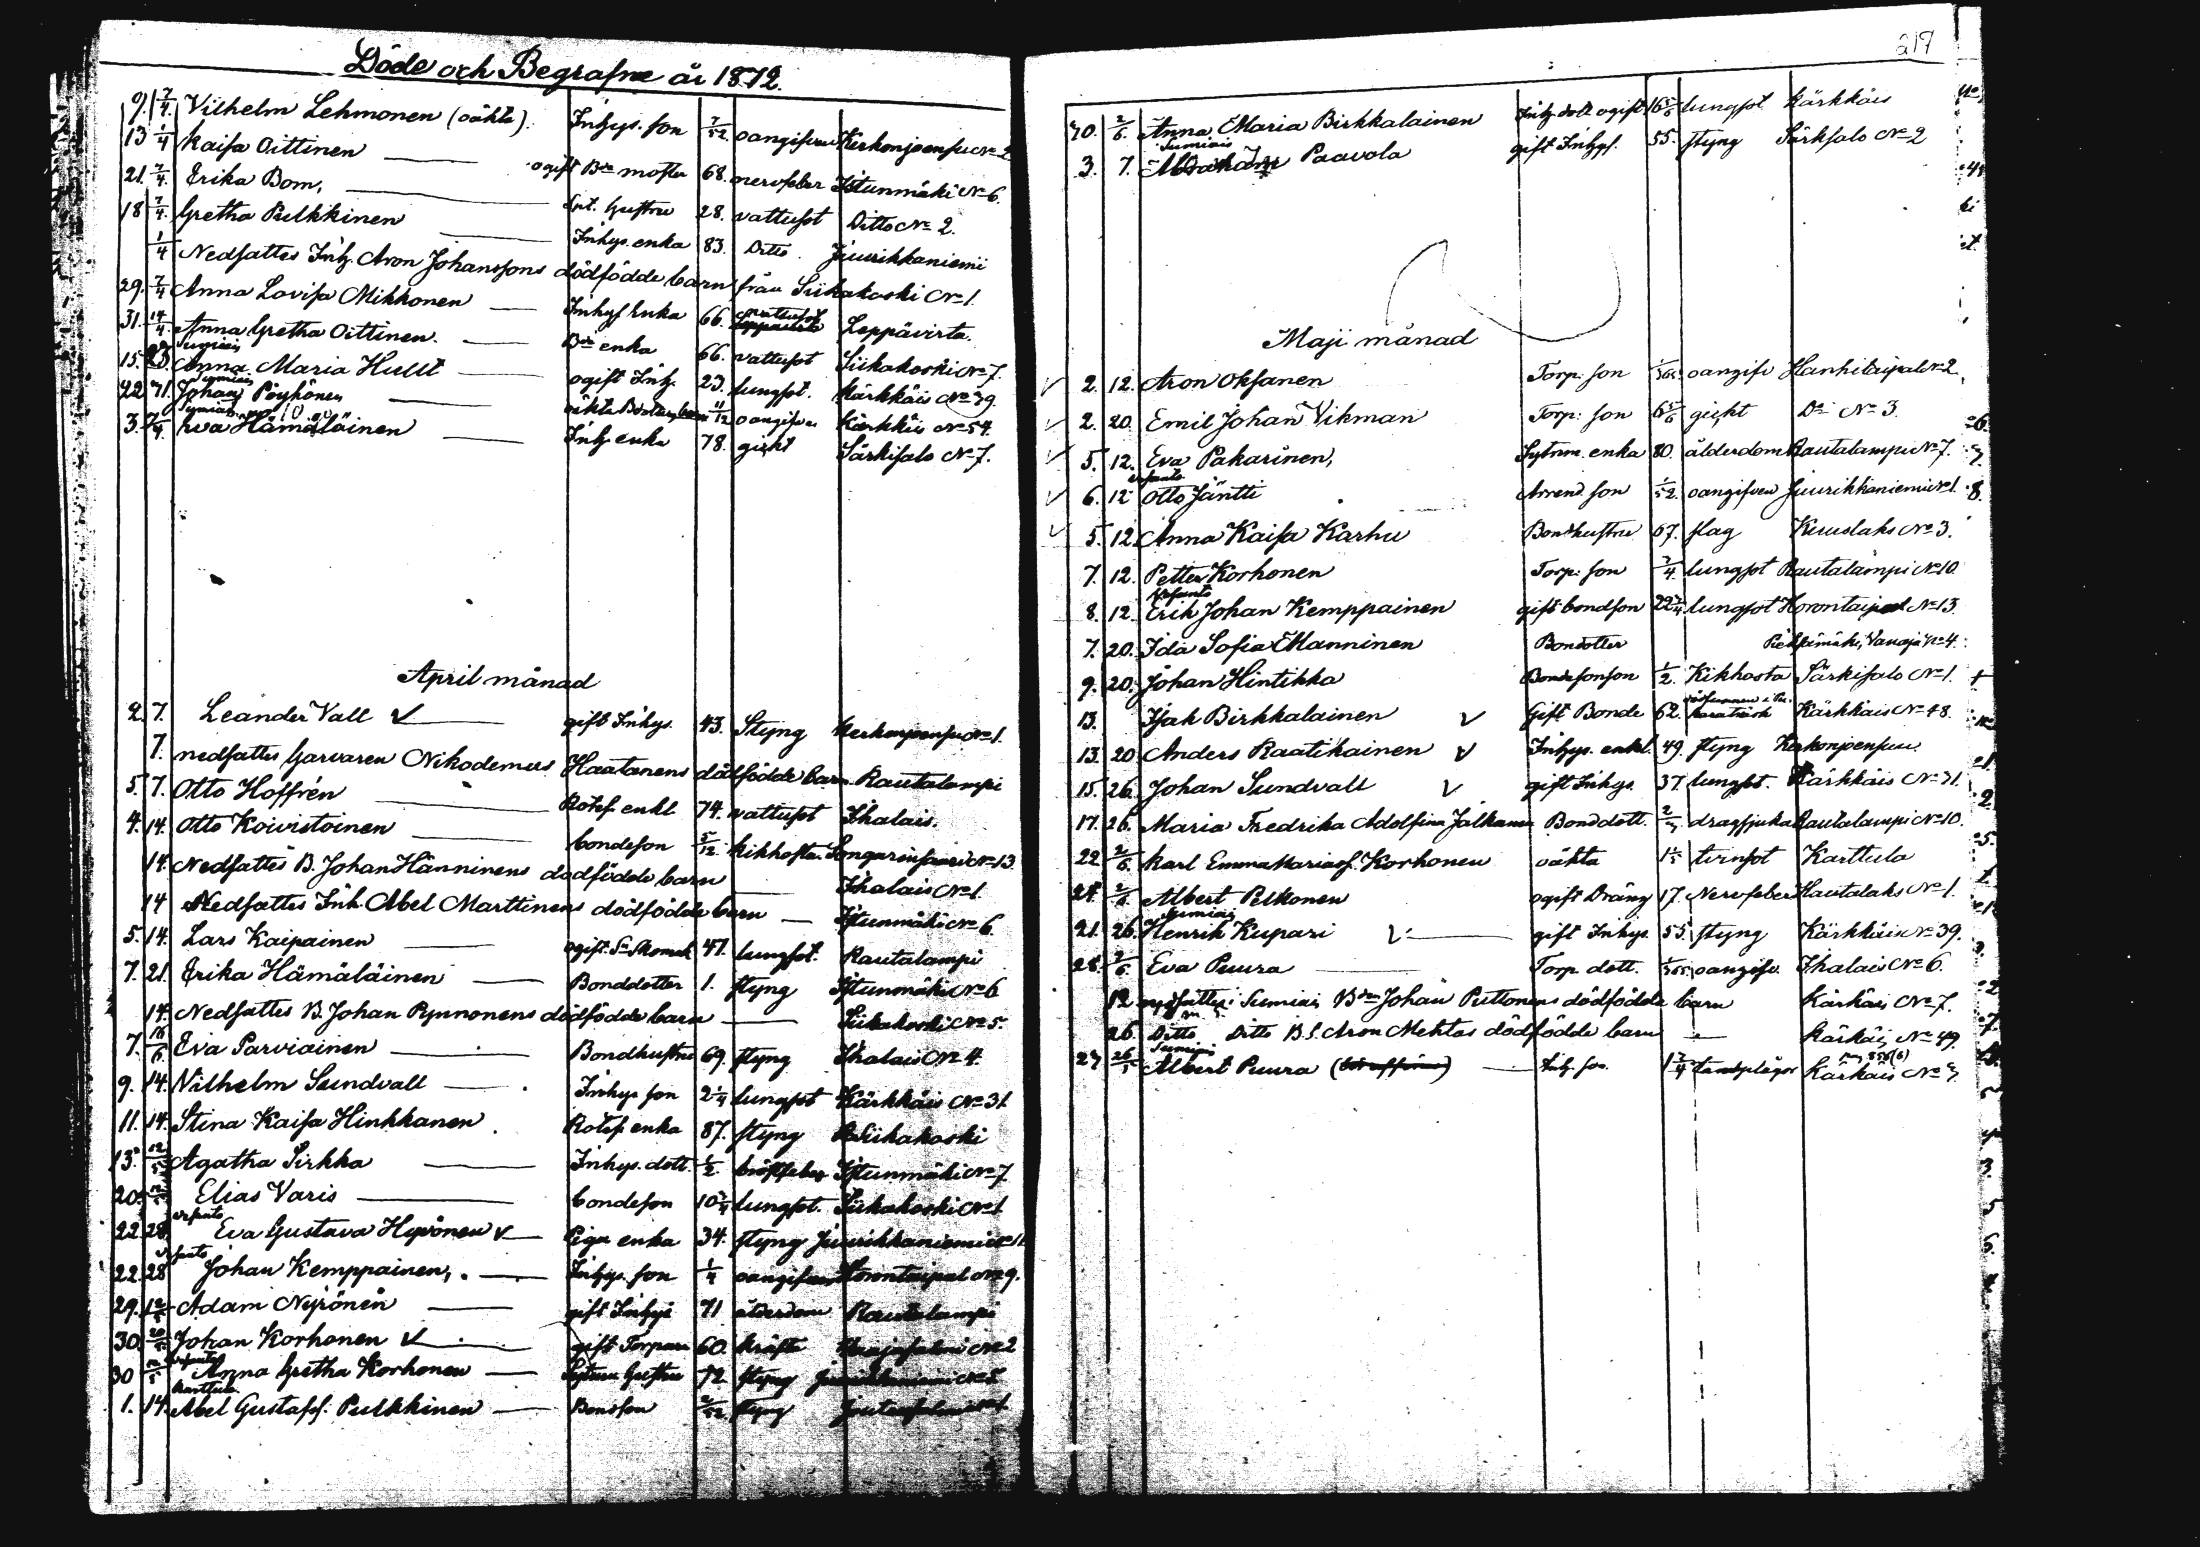 Döde och Begrafne år 1872.
9. 7/4. Vilhelm Lehmonen (oäkta). Inhys. son 7/52 oangifven Kerkonjoensu No 2
13 1/4 Kaisa Oittinen ogift Bde moster 68. nervfeber Istunmäki No 6.
21. 7/4. Erika Bom, hustru 28. vattusot Ditto No 2.
18 7/4. Gretha Pulkkinen Inhys. enka 83. Ditto Juurikkaniemi
1/4 Nedsattes Inh. Aron Johanssons dödfödde barn från Siikakoski No 1.
29. 7/4 Anna Lovisa Mikkonen Inhys Enka 66. vattusot Leppävirta.
31. 14/4. Anna Gretha Oittinen. Bde enka 66. vattusot Siikakoski No 7.
Sumiais
15. Anna Maria Hullt ogift Inh. 23. lungsot. Kärkkäis No 39
Sumiais
22 Johan Pöyhönen 11/12 oangifven Kärkkäis No 54.
Sumiais
3. 7/4 Eva Hämäläinen Inh. enka 78. gickt Särkisalo No 7.
April månad
2. 7. Leander Vall gift Inhys. 43. Styng Kerkonjoensu No 1.
7. nedsattes Garvaren Nikodemus Haatanens dödfödde barn Rautalampi
5. 7. Otto Hoffrén Rotef. enkl 74. vattusot Ihalais.
4. 14. Otto Koivistoinen bondeson 5/12 kikhosta. Songarinsaari No 13
14. Nedsattes B. Johan Hänninens dödfödde barn Ihalais No 1.
14 Nedsattes Inh. Abel Marttinens dödfödde barn Istunmäki No 6.
5. 14. Lars Kaipainen ogift 47. lungsot. Rautalampi
7. 21. Erika Hämäläinen Bonddotter 1. styng Istunmäki No 6
14. Nedsattes B. Johan Rynnonens dödfödde barn Siikakoski No 5.
7. 16/6. Eva Parviainen Bondhustru 69. styng Ihalais No 4.
9. 14. Vilhelm Sundvall Inhys son 2 1/4 lungsot Kärkkäis No 31
11. 14. Stina Kaisa Hinkkanen Rotef. enka 87. styng Siikakoski
13. 12/5 Agatha Sirkka Inhys. dott. 1/2. bröstfeber Istunmäki No 7
20. 12/5 Elias Varis bondeson 10 3/4 lungsot. Siikakoski No 1
Vesanto
22. 28. Eva Gustava Hyvönen Pigu enka 34. styng Juurikkaniemi No 11
Vesanto
22. 28 Johan Kemppainen, Inhys. son 1/4 oangifven Horontaipal No 9.
29. 12/5 Adam Nyrönen gift Inhys 71 ålderdom Rautalampi
30. 20/5 Johan Korhonen gift Torpare 60. kräfta No 2
Vesanto
30 12/5 Anna Gretha Korhonen 72. styng Juurikkaniemi No 5
Karttula
1. 14. Abel Gustafs. Pulkkinen Bondson 2/52 styng
217
30. 2/6. Anna Maria Birkkalainen Inh. dott. ogift 16 5/6 lungsot Kärkkäis
Sumiais
3. 7. Paavola gift Inhys. 55. styng Särkisalo No 2
Maji månad
2. 12. Aron Oksanen Torp. son 1/365. oangifv Hanhitaipal No 2
2. 20. Emil Johan Vikman Torp: son 6 5/6 gickt Do No 3.
5. 12. Eva Pakarinen, Sytnin. enka 80. ålderdom Rautalampi No 7.
Vesanto
6. 12 Otto Jäntti Arrend. son 1/52. oangifven Juurikkaniemi No 1.
5. 12. Anna Kaisa Karhu Bondhustru 67. slag Kuuslaks No 3.
7. 12. Petter Korhonen Torp: son 3/4. lungsot Rautalampi No 10.
Vesanto
8. 12. Erik Johan Kemppainen gift bondson 22 3/4 lungsot Horontaipal No 13.
7. 20. Ida Sofia Manninen Bondotter Pieksämäki, Vanaja No 4.
9. 20. Johan Hintikka Bondesonson 1/2. Kikhosta Särkisalo No 1.
13. Isak Birkkalainen Gift Bonde 62. Kärkkäis No 48.
13. 20 Anders Raatikainen Inhys. enkl. 49. styng Kerkonjoensuu
15. 26. Johan Sundvall gift Inhys. 37. lungsot. Kärkkäis No 31.
17. 26. Maria Fredrika Adolfina Jalkanen Bonddott. dragsjuka Rautalampi No 10.
22 2/6. Karl Emma Marias. Korhonen oäkta 1 1/5 tvinsot Karttula
24. 2/6 Albert Pelkonen ogift Dräng 17. Nervfeber Hautalaks No 1.
Sumiais
21. 26. Henrik Kupari gift Inhys. 55. styng Kärkkäis No 39.
28. 2/6. Eva Puura Torp. dott. 1/365. oangifv. Ihalais No 6.
12. nedsattes i Sumiais Bde Johan Puttonens dödfödde barn Kärkkäis No 7.
26. Ditto Ditto B.S. Aron Mehtos dödfödde barn Kärkäis No 49.
Sumiais
27 26/5 Albert Puura Inh. son 1 3/4 tandplågor Kärkäis No 3